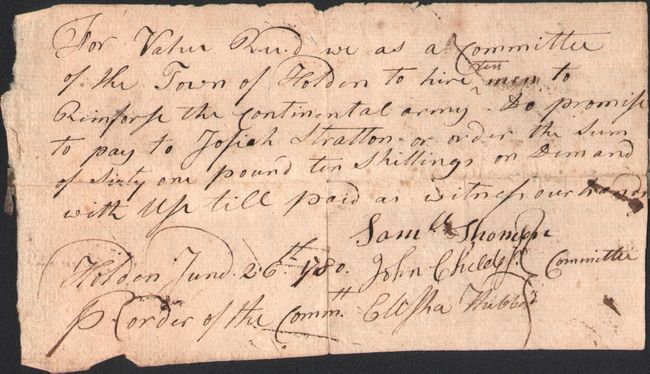 For Value Rec.d we as a Committee
of the Town of Holden to hire ten men to
Reinforse the Continental army Do promise
to pay to Josiah Stratton or order the Sum
of Sixty one pound ten Shillings on Demand
with Use till paid as witness our hands
Sam.ll Thomson
Holden June 26th 1780. John Child Committee
Pr order of the Commtt. Elisha Hubbd